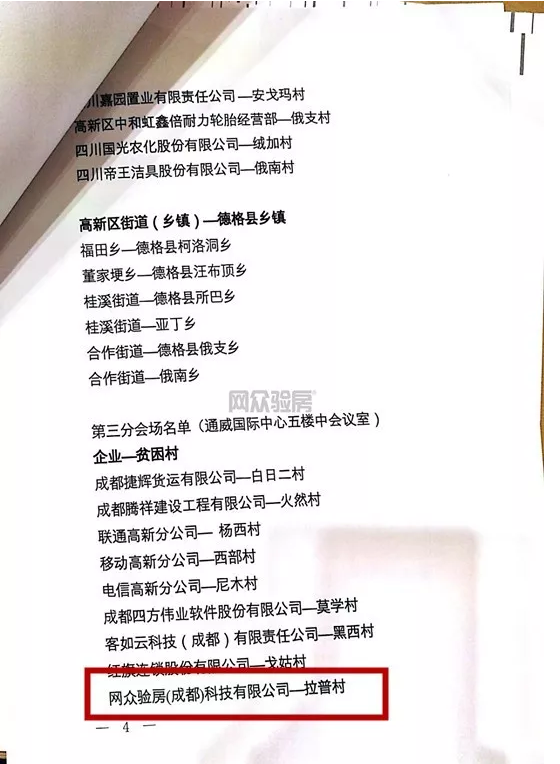 川嘉园置业有限责任公司—安戈玛村
高新区中和虹鑫倍耐力轮胎经营部—俄支村
四川国光农化股份有限公司—绒加村
四川帝王洁具股份有限公司—俄南村
高新区街道（乡镇）—德格县乡镇
福田乡—德格县柯洛洞乡
董家埂乡—德格县汪布顶乡
桂溪街道—德格县所巴乡
桂溪街道—亚丁乡
合作街道—德格县俄支乡
合作街道—俄南乡
网众验房
第三分会场名单（通威国际中心五楼中会议室）
企业—贫困村
成都捷辉货运有限公司—白日二村
成都腾祥建设工程有限公司—火然村
联通高新分公司— 杨西村
移动高新分公司—西部村
电信高新分公司—尼木村
成都四方伟业软件股份有限公司—莫学村
客如云科技（成都）有限责任公司—黑西村
红旗连锁股份有限公司—戈姑村
网众验房(成都)科技有限公司—拉普村
— 4 —